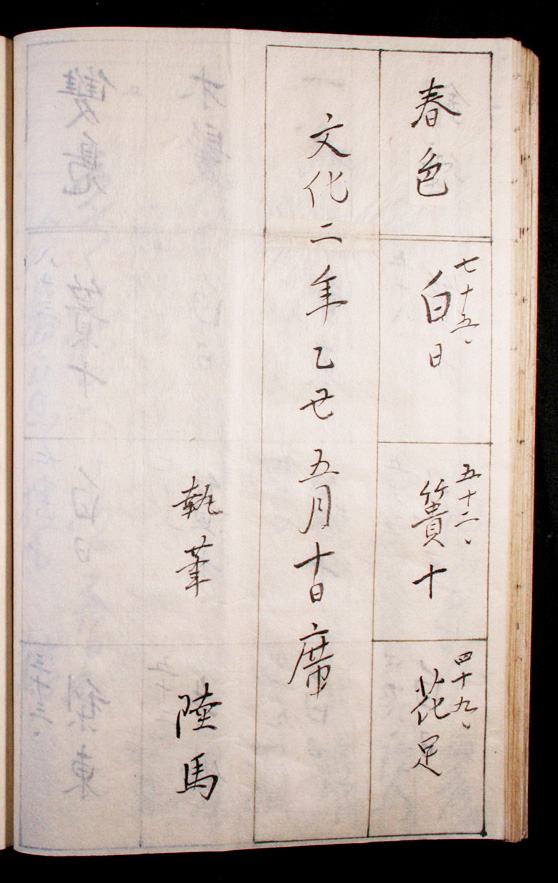 春色
七十五、
白日
五十二、
簀十
四十九、
花足
文化二年乙丑五月十日席
執筆 陸馬